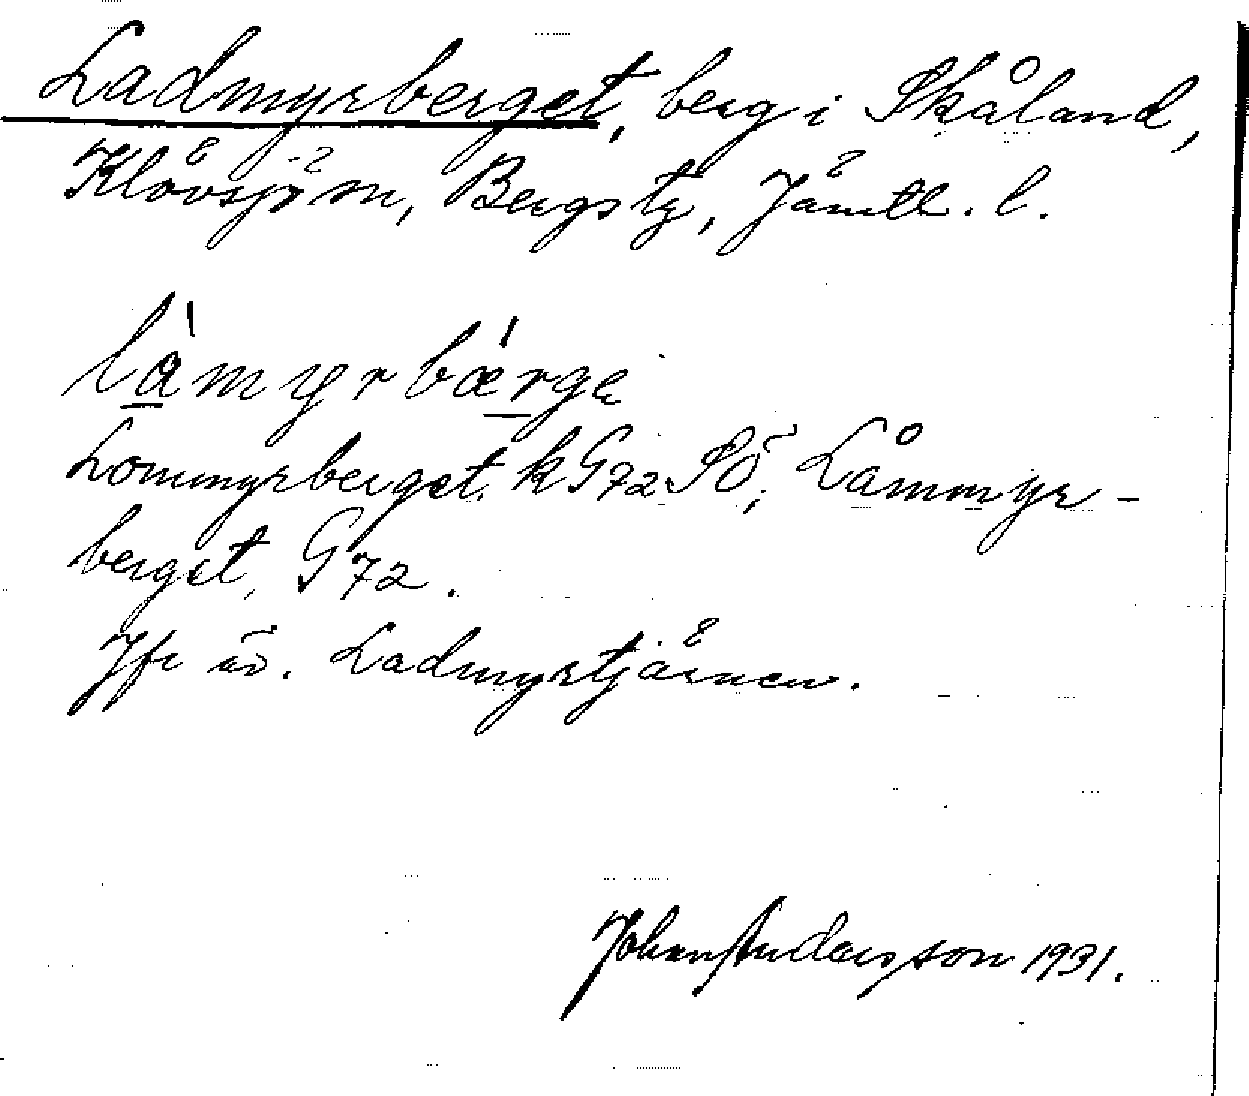 Ladmyrberget, berg i Skåland,
Klövsjö sn, Bergs tg, Jämtl. l.
làmyrbǽrge
Lommyrberget, k G72 SÖ; Låmmyr-
berget, G 72.
Jfr äv. Ladmyrtjärnen.
Johan Andersson 1931.